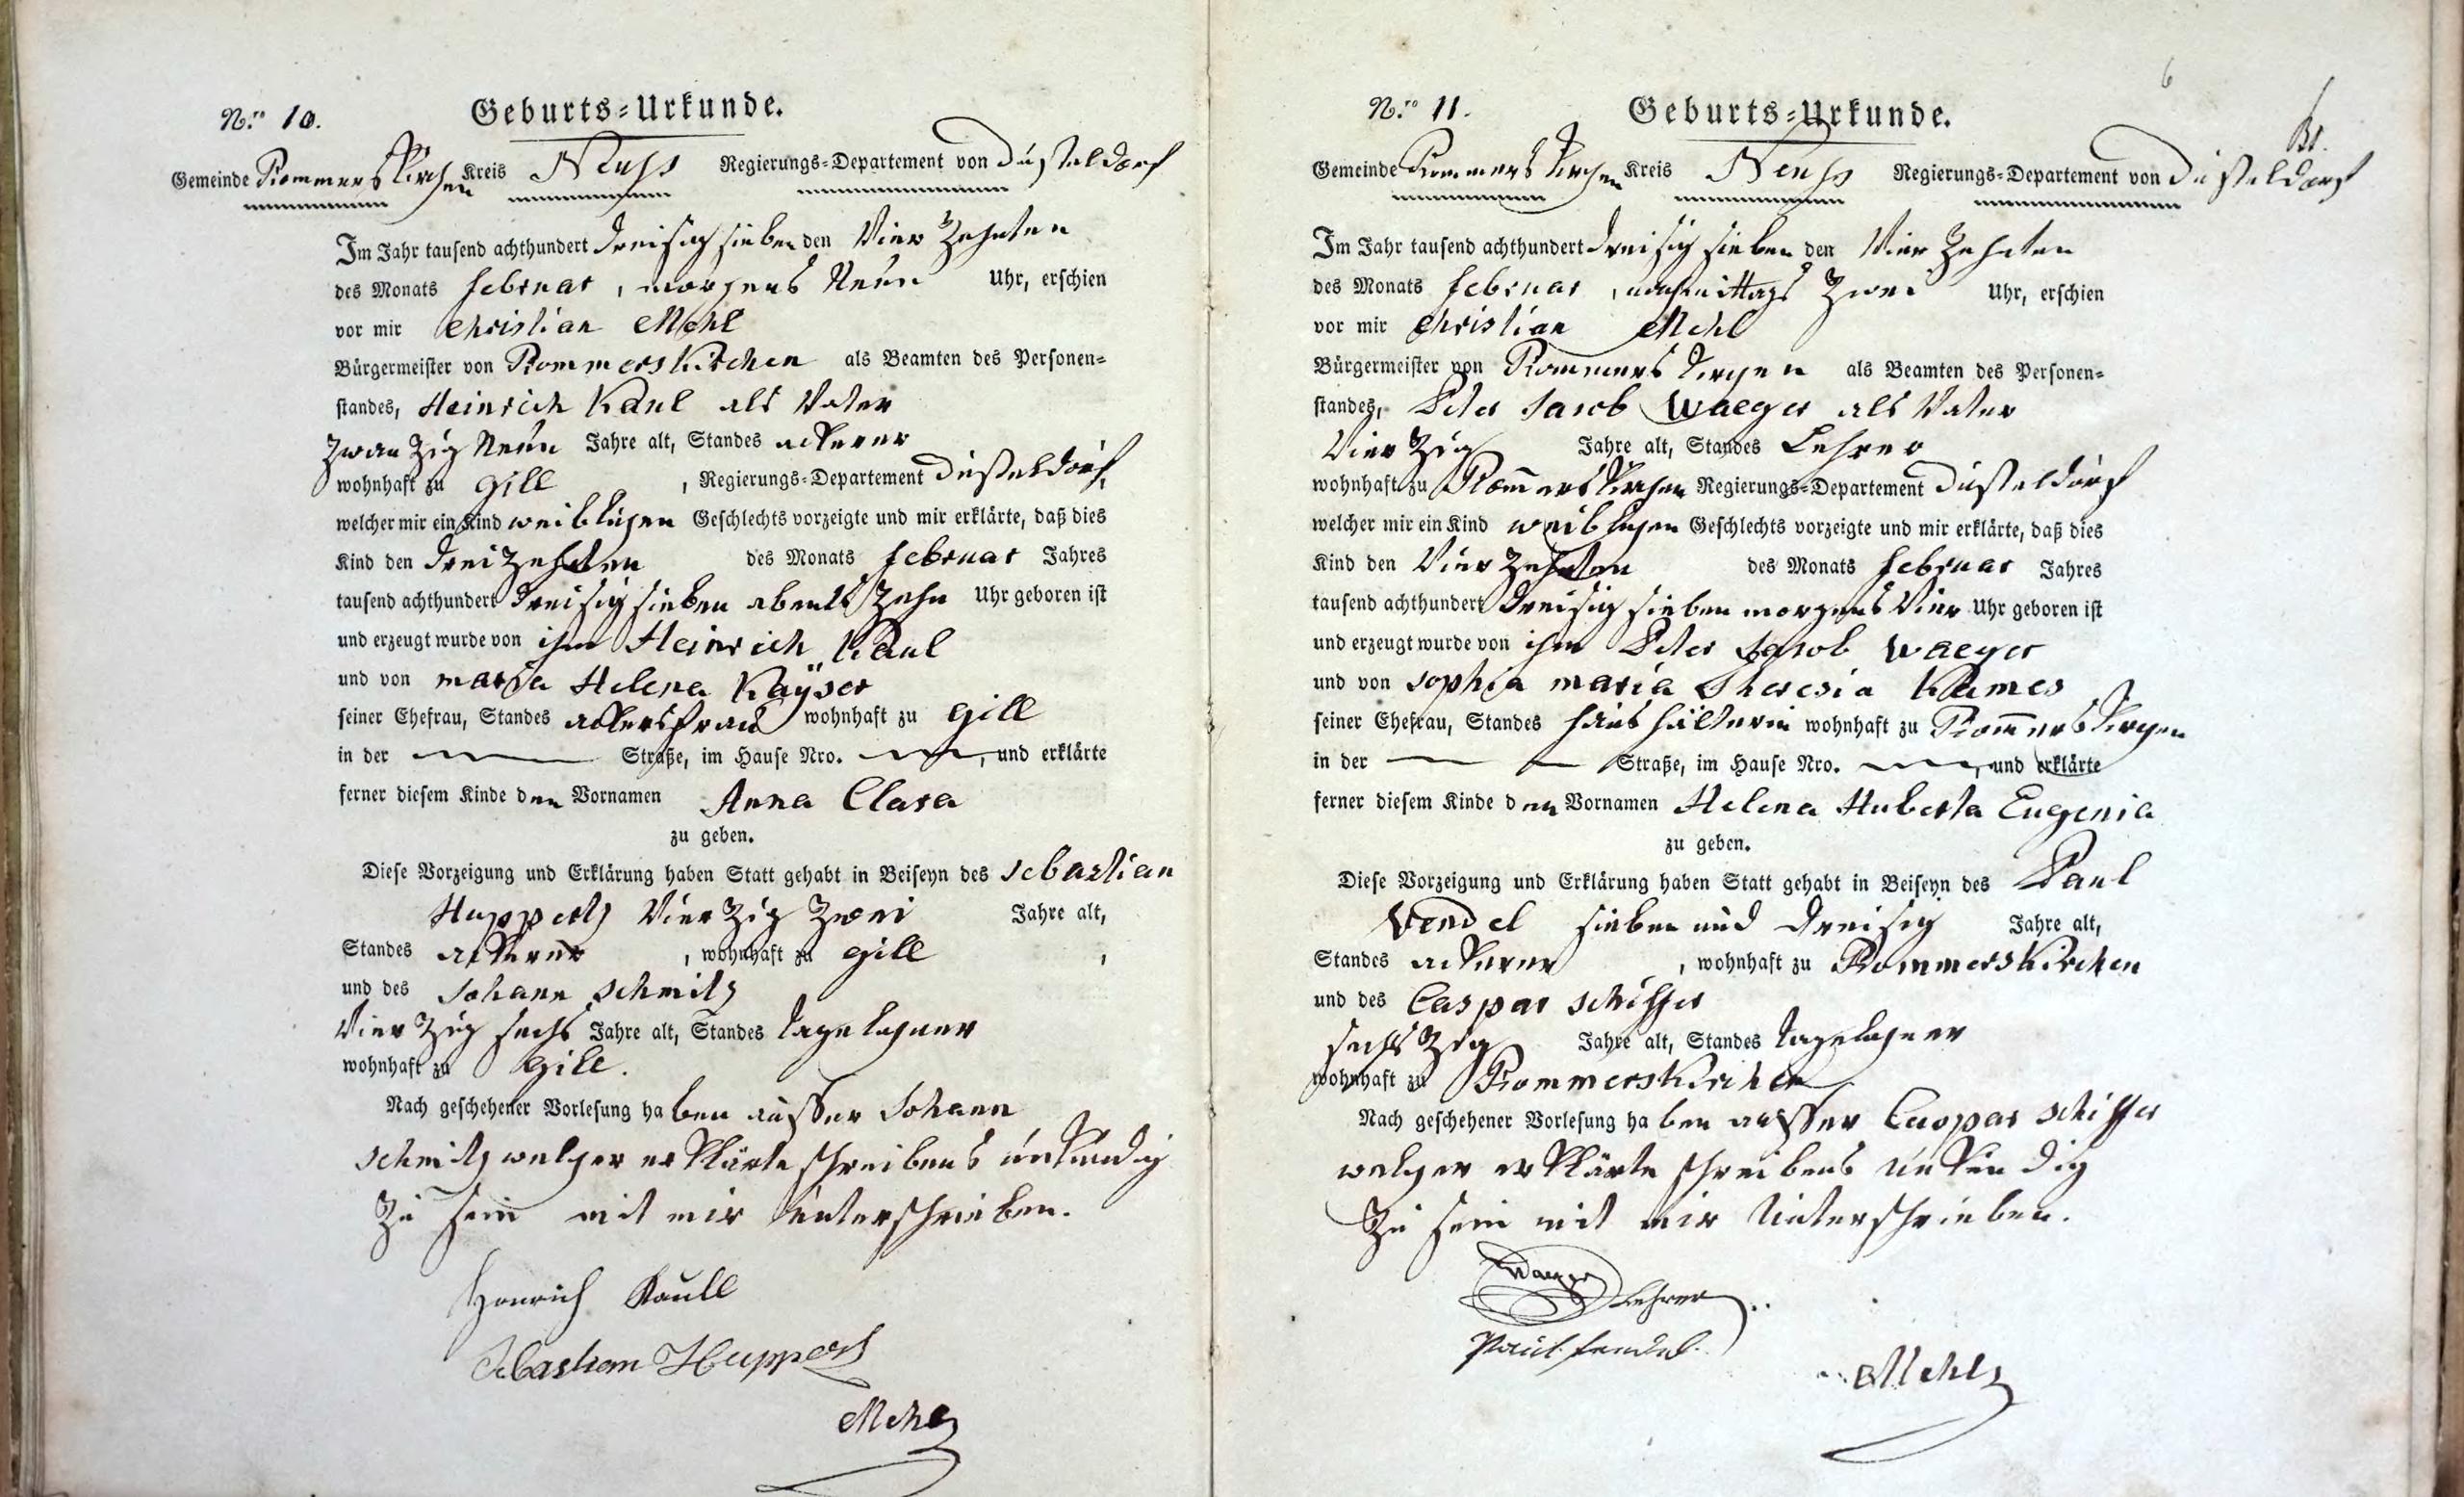 Nro 10.
Geburts=Urkunde.
Gemeinde Rommerskirchen Kreis Neuss Regierungs=Departement von Düsseldorf
Im Jahr tausend achthundert dreisig sieben den Vier Zehnten
des Monats februar, morgens Neün Uhr, erschien
vor mir Christian Mehl
Bürgermeister von Rommerskirchen als Beamten des Personen=
standes, Heinrich Kaul als Vater
Zwanzig Neün Jahre alt, Standes ackerer
wohnhaft zu Gill, Regierungs=Departement Düsseldorf,
welcher mir ein Kind weiblichen Geschlechts vorzeigte und mir erklärte, daß dies
Kind den dreizehnten des Monats februar Jahres
tausend achthundert dreisig sieben abends Zehn Uhr geboren ist
und erzeugt wurde von ihm Heinrich Kaul
und von maria Helena Kaÿser
seiner Ehefrau, Standes ackersfrau wohnhaft zu Gill
in der Straße, im Hause Nro. , und erklärte
ferner diesem Kinde den Vornamen Anna Clara
zu geben.
Diese Vorzeigung und Erklärung haben Statt gehabt in Beiseyn des Sebastian
Huppertz Vierzig Zwei Jahre alt,
Standes ackerer, wohnhaft zu Gill,
und des Johann Schmitz
Vierzig sechs Jahre alt, Standes tagelohner
wohnhaft zu Gill.
Nach geschehener Vorlesung haben ausser Johann
Schmitz welcher erklärte schreibens unkundig
Zu sein mit mir unterschrieben.
Henrich Kaull
Sebastian Huppertz
Mehl
6
Nro 11.
Geburts=Urkunde.
Gemeinde Rommerskirchen Kreis Neuss Regierungs=Departement von Düsseldorf
Im Jahr tausend achthundert dreisig sieben den Vier Zehnten
des Monats februar, nachmittags Zwei Uhr, erschien
vor mir Christian Mehl
Bürgermeister von Rommerskirchen als Beamten des Personen=
standes, Peter Jacob Waeger als Vater
Vierzig Jahre alt, Standes Lehrer
wohnhaft zu Rom̄erskirchen Regierungs=Departement Düsseldorf
welcher mir ein Kind weiblichen Geschlechts vorzeigte und mir erklärte, daß dies
Kind den Vierzehnten des Monats februar Jahres
tausend achthundert dreisig sieben morgens Vier Uhr geboren ist
und erzeugt wurde von ihm Peter Jacob Waeger
und von Sophia maria Theresia Kames
seiner Ehefrau, Standes haushälterin wohnhaft zu Rom̄erskirchen
in der Straße, im Hause Nro. , und erklärte
ferner diesem Kinde den Vornamen Helena Huberta Eugenia
zu geben.
Diese Vorzeigung und Erklärung haben Statt gehabt in Beiseyn des Paul
Vendel sieben und dreisig Jahre alt,
Standes ackerer, wohnhaft zu Rommerskirchen
und des Caspar Schiffer
sechszig Jahre alt, Standes tagelohner
wohnhaft zu Rommerskirchen
Nach geschehener Vorlesung haben ausser Caspar Schiffer
welcher erklärte schreibens unkundig
Zu sein mit mir Unterschrieben.
Waeger Lehrer
Paul fendel.
Mehl